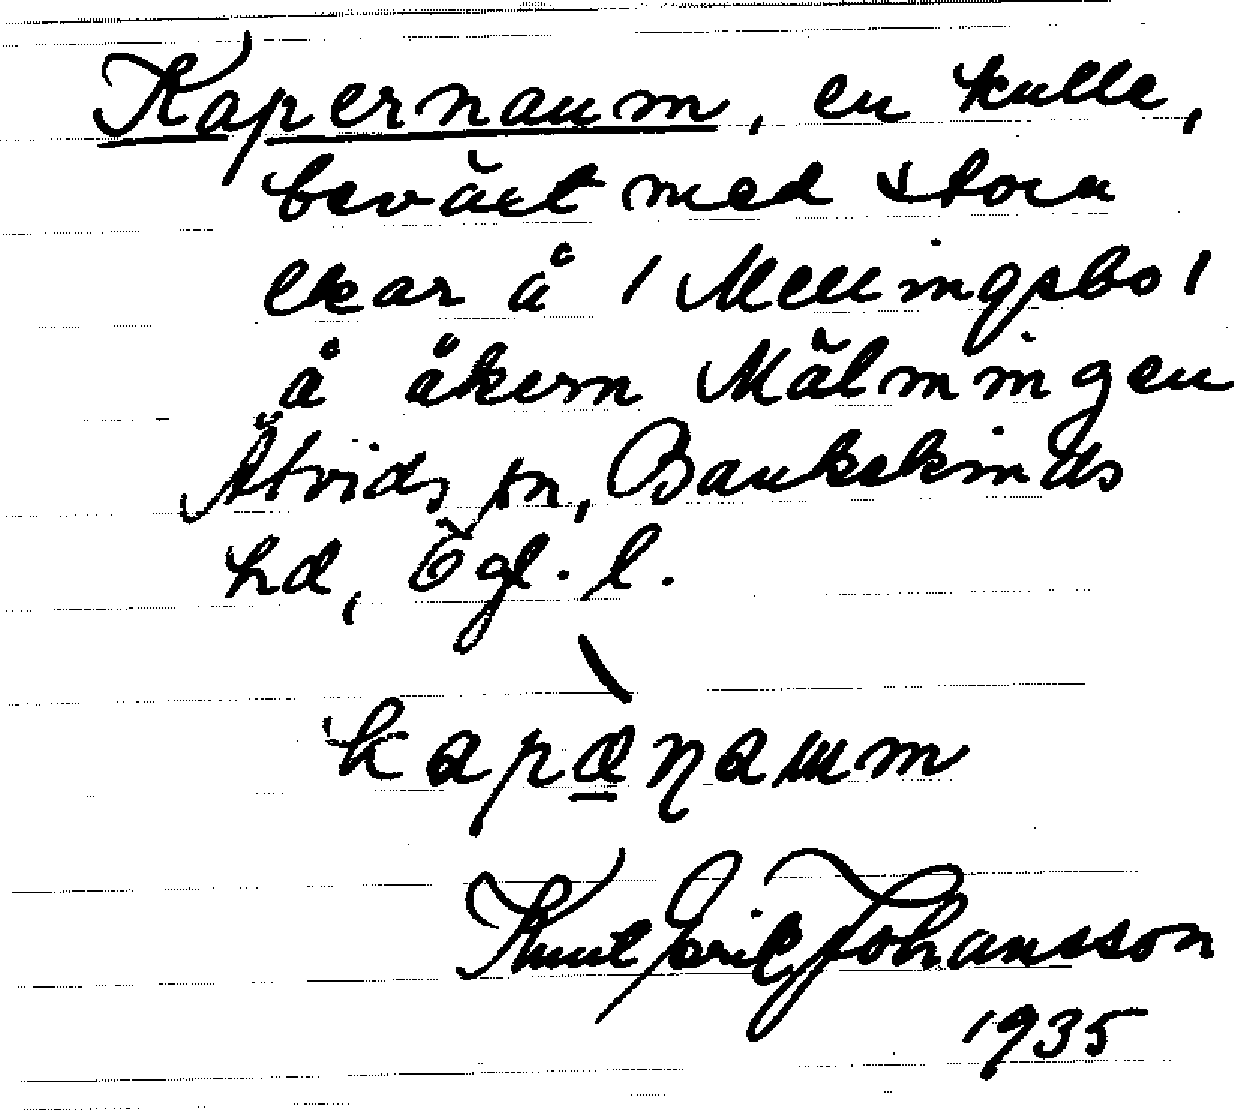 Kapernaum, en kulle,
beväxt med stora
ekar å / Mellingsbo /
å åkern Mälmingen
Åtvids sn, Bankekinds
hd, Ögl. l.
Knut Erik Johansson
1935